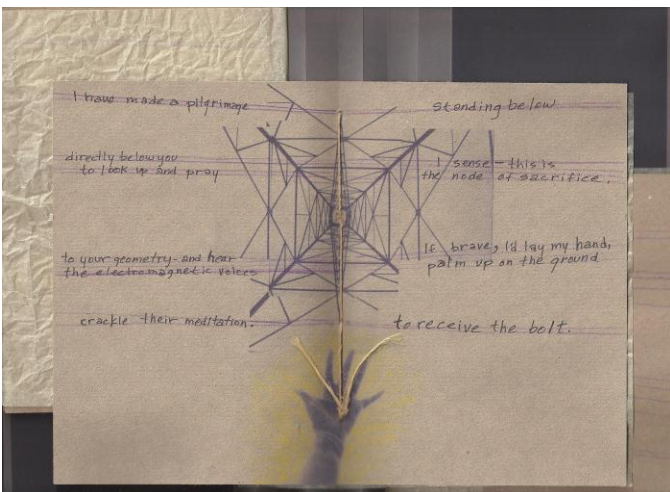 I have made a pilgrimage
directly below you
to look up and pray
to your geometry - and hear
the electromagnetic voices
crackle their meditation.
Standing below
I sense - this is
the node of sacrifice.
If brave, I'd lay my hand,
palm up on the ground
to receive the bolt.